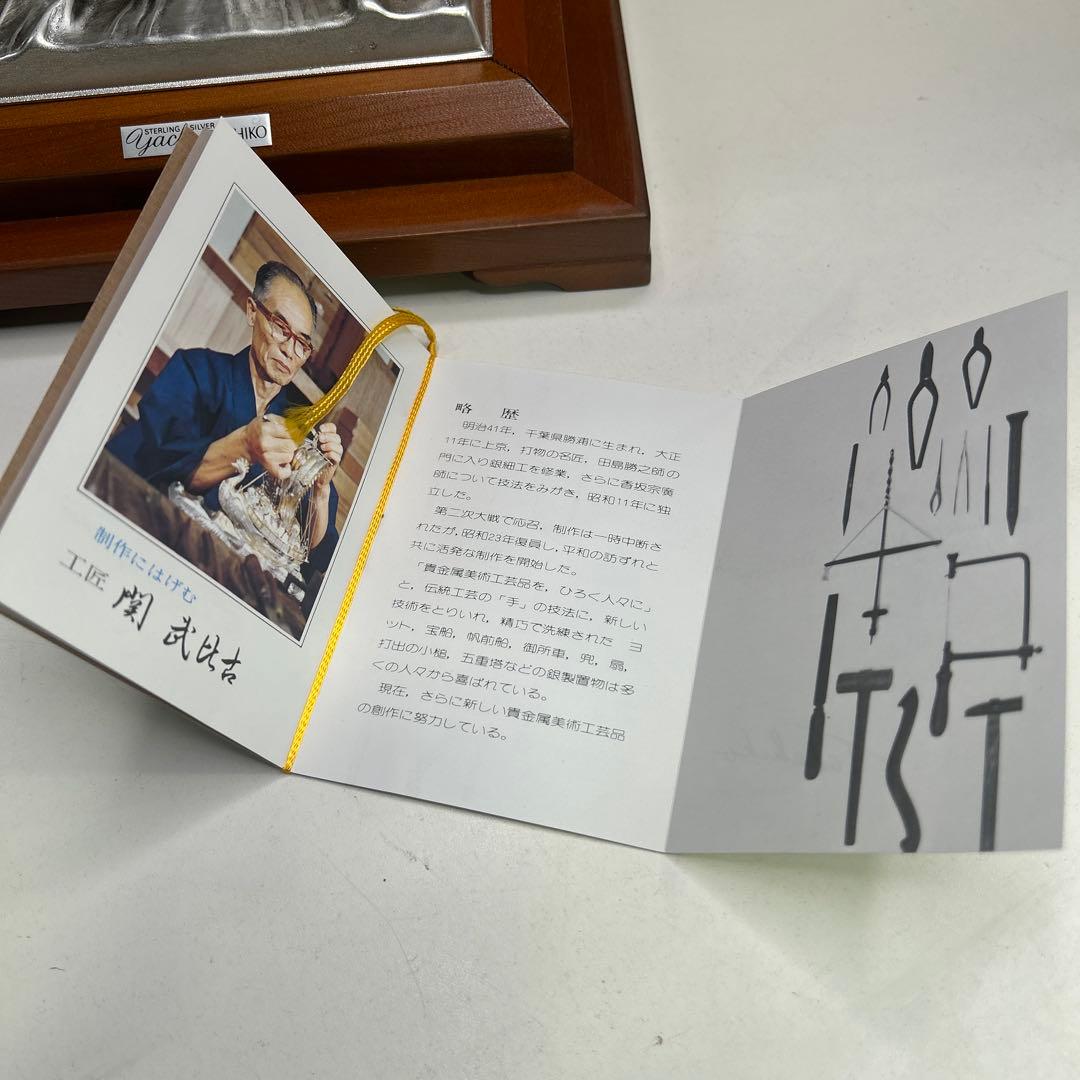 STERLING SILVER
Yac HIKO
制作にはげむ
工匠 関 武比古
略 歴
明治41年，千葉県勝浦に生まれ，大正
11年に上京，打物の名匠，田島勝之師の
門に入り銀細工を修業，さらに香坂宗廣
師について技法をみがき，昭和11年に独
立した。
第二次大戦で応召，制作は一時中断さ
れたが，昭和23年復員し，平和の訪ずれと
共に活発な制作を開始した。
「貴金属美術工芸品を，ひろく人々に」
と，伝統工芸の「手」の技法に，新しい
技術をとりいれ，精巧で洗練された ヨ
ット，宝船，帆前船，御所車，兜，扇，
打出の小槌，五重塔などの銀製置物は多
くの人々から喜ばれている。
現在，さらに新しい貴金属美術工芸品
の創作に努力している。